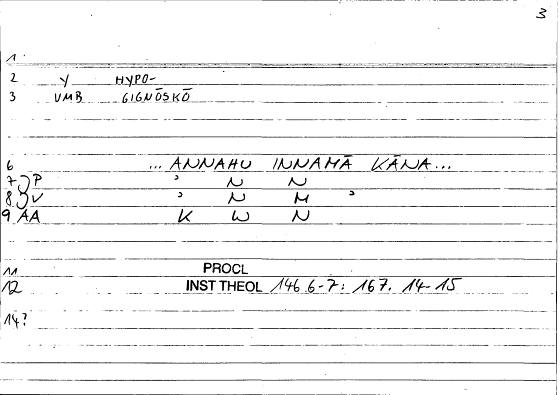 3
1
2 Y HYPO-
3 VMB GIGNŌSKŌ
6 ... ANNAHU INNAMĀ KĀNA...
7 P ʾ N N
8 V ʾ N M ʾ
9 AA K W N
11 PROCL
12 INST THEOL 146.6-7: 167. 14-15
14?